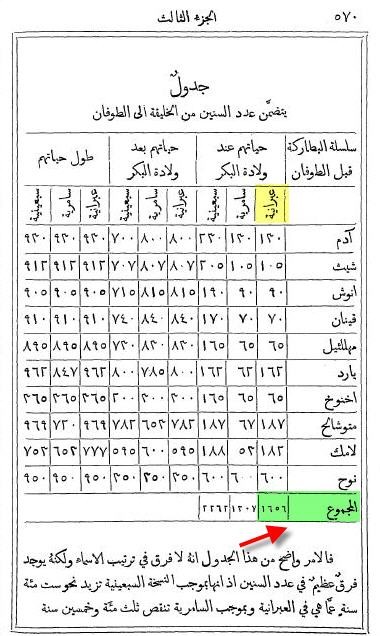 ٥٧٠ الجزء الثالث
جدول
يتضمَّن عدد السنين من الخليقة الى الطوفان
سلسلة البطاركة حياتهم عند حياتهم بعد طول حياتهم
قبل الطوفان ولادة البكر ولادة البكر
عبرانية سامرية سبعينية عبرانية سامرية سبعينية عبرانية سامرية سبعينية
آدم ١٣٠ ١٣٠ ٢٣٠ ٨٠٠ ٨٠٠ ٧٠٠ ٩٣٠ ٩٣٠ ٩٣٠
شيث ١٠٥ ١٠٥ ٢٠٥ ٨٠٧ ٨٠٧ ٧٠٧ ٩١٢ ٩١٢ ٩١٢
انوش ٩٠ ٩٠ ١٩٠ ٨١٥ ٨١٥ ٧١٥ ٩٠٥ ٩٠٥ ٩٠٥
قينان ٧٠ ٧٠ ١٧٠ ٨٤٠ ٨٤٠ ٧٤٠ ٩١٠ ٩١٠ ٩١٠
مهللئيل ٦٥ ٦٥ ١٦٥ ٨٣٠ ٨٣٠ ٧٣٠ ٨٩٥ ٨٩٥ ٨٩٥
يارد ١٦٢ ٦٢ ١٦٢ ٨٠٠ ٧٨٥ ٨٠٠ ٩٦٢ ٨٤٧ ٩٦٢
اخنوخ ٦٥ ٦٥ ١٦٥ ٣٠٠ ٣٠٠ ٢٠٠ ٣٦٥ ٣٦٥ ٣٦٥
متوشالح ١٨٧ ٦٧ ١٨٧ ٧٨٢ ٦٥٣ ٧٨٢ ٩٦٩ ٧٢٠ ٩٦٩
لامك ١٨٢ ٥٣ ١٨٨ ٥٩٥ ٦٠٠ ٥٩٥ ٧٧٧ ٦٥٣ ٧٥٣
نوح ٦٠٠ ٦٠٠ ٦٠٠ ٣٥٠ ٣٥٠ ٣٥٠ ٩٥٠ ٩٥٠ ٩٥٠
المجموع ١٦٥٦ ١٣٠٧ ٢٢٦٢
فالامر واضح من هذا الجدول انه لا فرق في ترتيب الاسماء ولكنهُ يوجد
فرق عظيم في عدد السنين اذ انها بموجب النسخة السبعينية تزيد نحو ست مئة
سنةٍ عمَّا هي في العبرانية وبموجب السامرية تنقص ثلث مئة وخمسين سنة